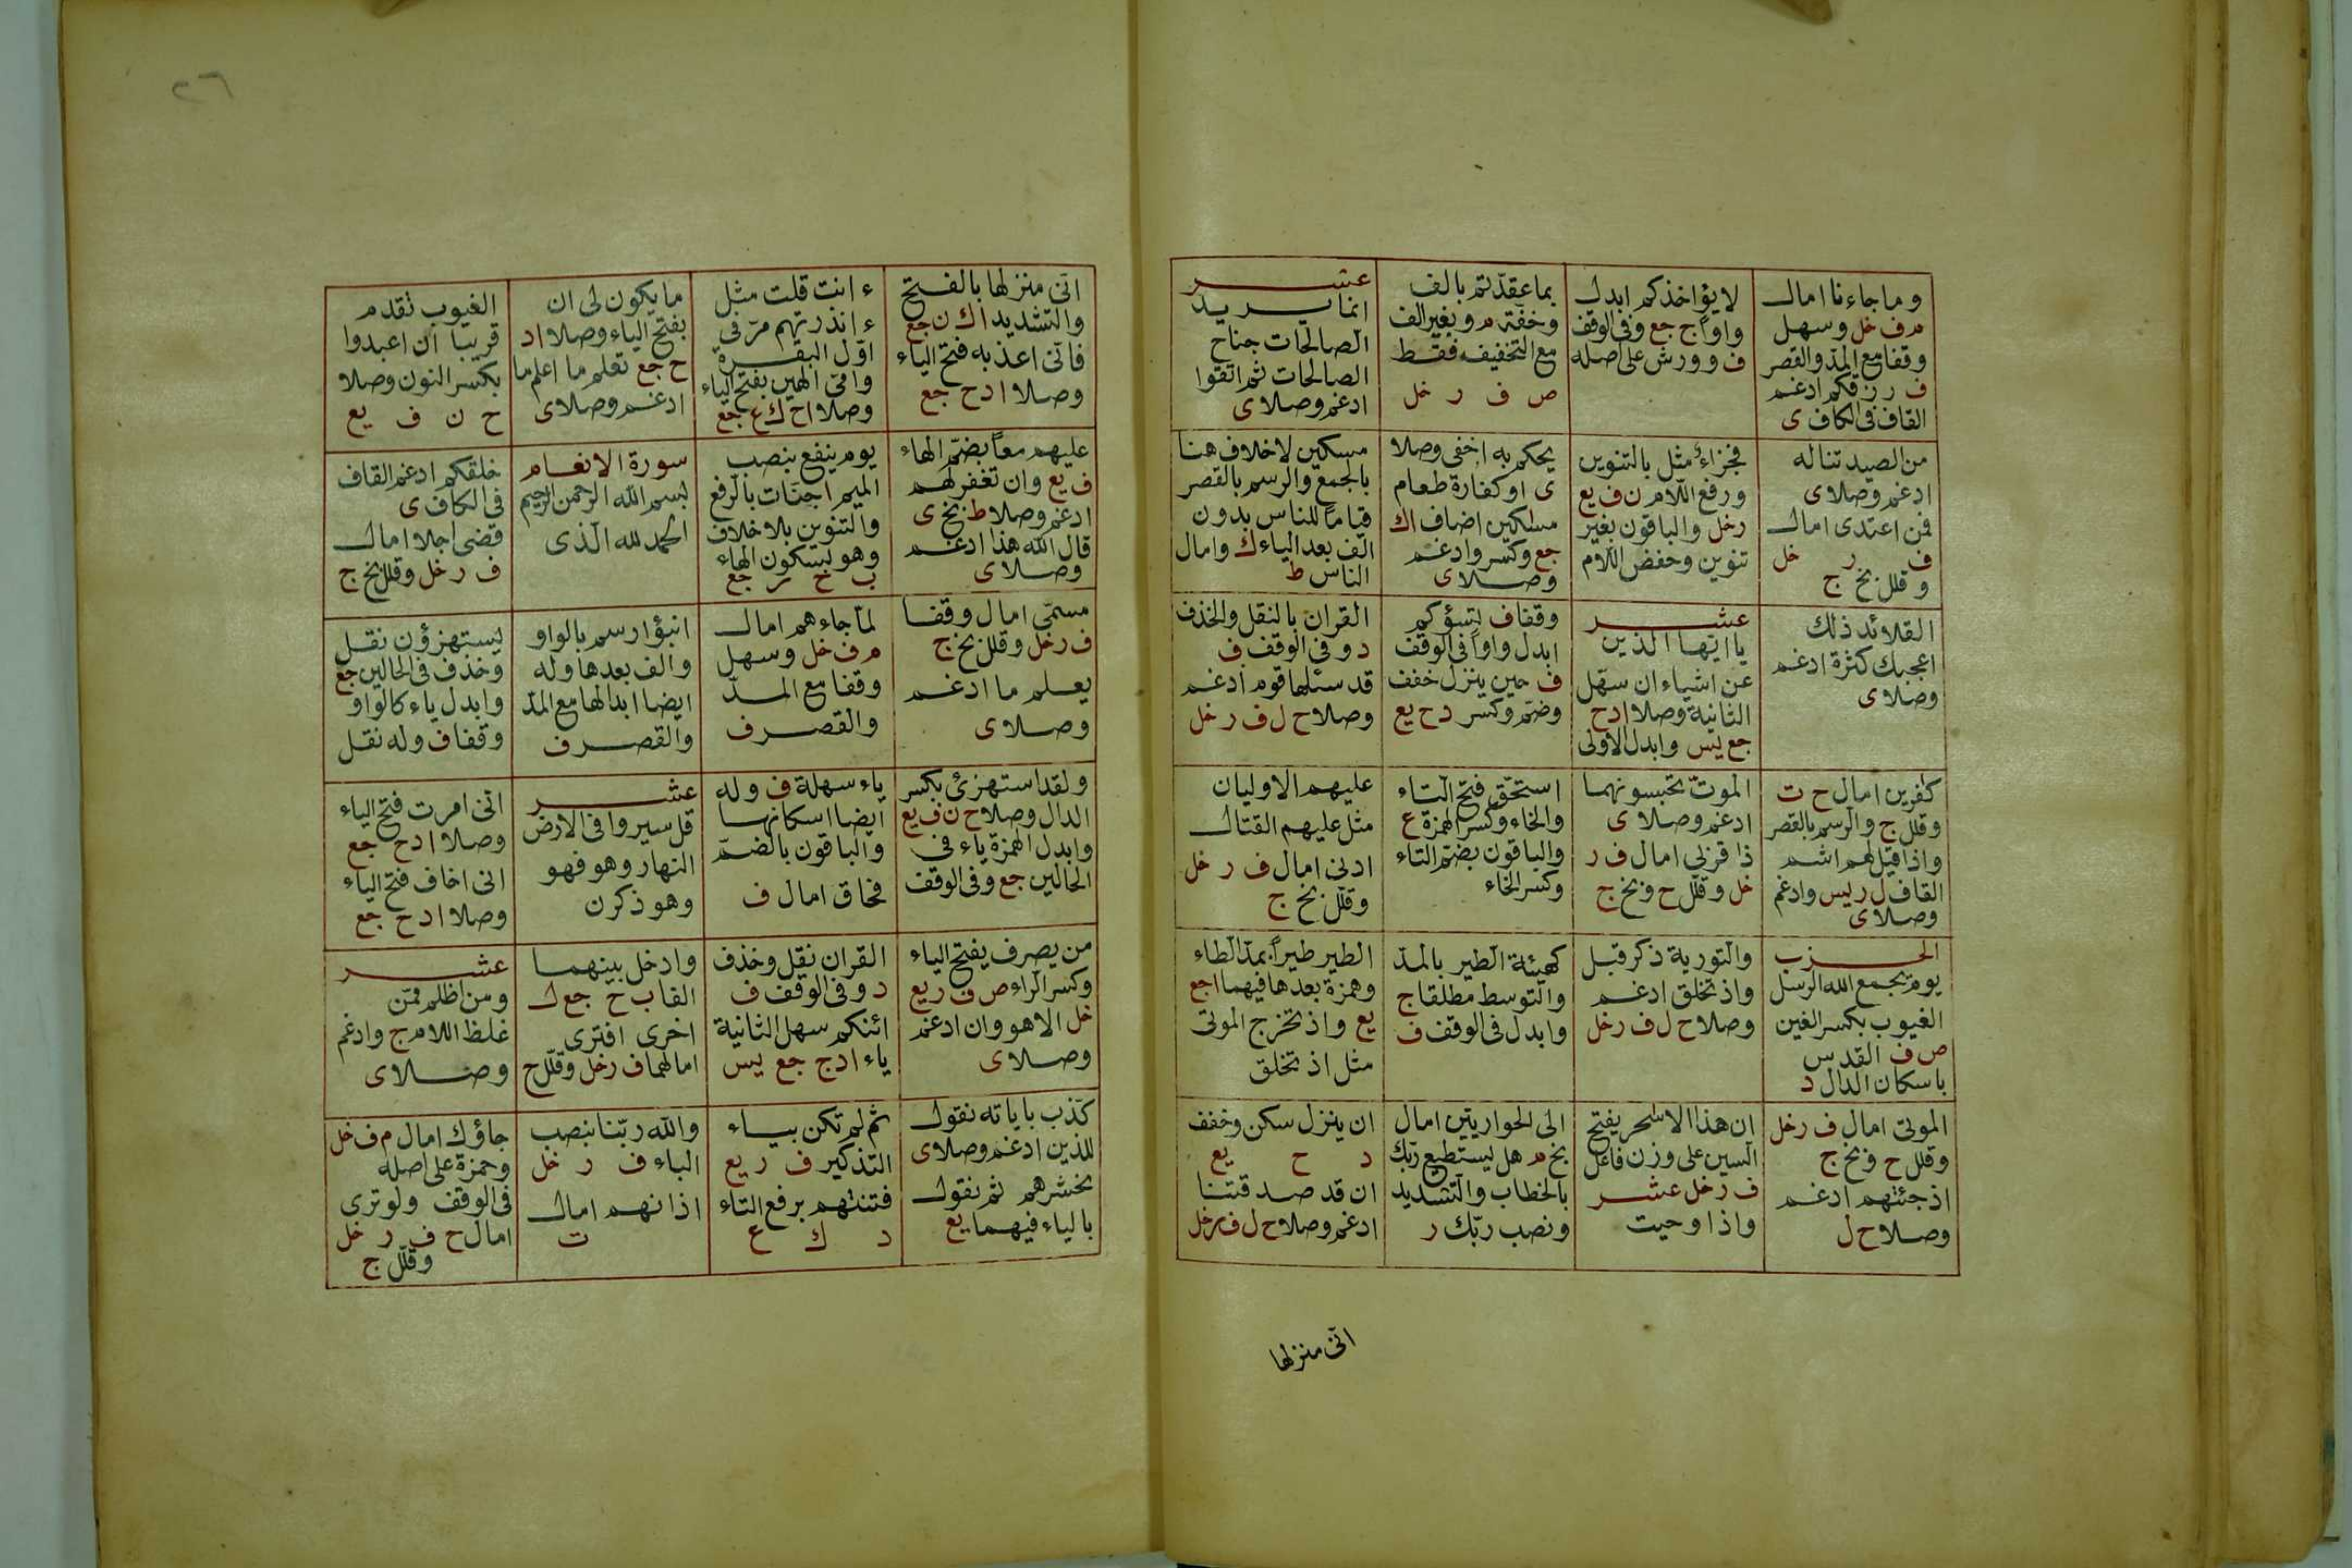 وما جاءنا امال
م ف خل وسهل
وقفا مع المد والقصر
ف رزقكم ادغم
القاف فى الكاف ى
لا يؤاخذكم ابدل
واوا ج جع وفى الوقف
ف وورش على اصله
بما عقدتم بالف
وخفة م و بغير الف
مع التخفيف فقط
ص ف ر خل
عشر
انما يريد
الصالحات جناح
الصالحات ثم اتقوا
ادغم وصلا ى
من الصيد تناله
ادغم وصلا ى
فمن اعتدى امال
ف ر خل
وقلل بخ ج
فجزاء مثل بالتنوين
ورفع اللام ن ف يع
ر خل والباقون بغير
تنوين وخفض اللام
يحكم به اخفى وصلا
ى او كفارة طعام
مسكين اضاف ا ك
جع وكسر وادغم
وصلا ى
مسكين لا خلاف هنا
بالجمع والرسم بالقصر
قياما للناس بدون
الف بعد الياء ك وامال
الناس ط
القلائد ذلك
اعجبك كثرة ادغم
وصلا ى
عشر
يا ايها الذين
عن اشياء ان سهل
الثانية وصلا ا د ح
جع يس وابدل الاولى
وقفا ف تسؤكم
ابدل واوا فى الوقف
ف حين ينزل خفف
وضم وكسر د ح يع
القران بالنقل والحذف
د وفى الوقف ف
قد سئلها قوم ادغم
وصلا ح ل ف ر خل
كفرين امال ح ت
وقلل ج والرسم بالقصر
واذا قيل لهم اشم
القاف ل ر يس وادغم
وصلا ى
الموت تحبسونهما
ادغم وصلا ى
ذا قربى امال ف ر
خل وقلل ح وبخ ج
استحق فتح التاء
والحاء وكسر الهمزة ع
والباقون بضم التاء
وكسر الحاء
عليهم الاوليان
مثل عليهم القتال
ادنى امال ف ر خل
وقلل بخ ج
الحزب
يوم يجمع الله الرسل
الغيوب بكسر الغين
ص ف القدس
باسكان الدال د
والتورية ذكر قبل
واذ تخلق ادغم
وصلا ح ل ف ر خل
كهيئة الطير بالمد
والتوسط مطلقا ج
وابدل فى الوقف ف
الطير طيرا بمد الطاء
وهمزة بعدها فيهما ا جع
يع واذ تخرج الموتى
مثل اذ تخلق
الموتى امال ف ر خل
وقلل ح وبخ ج
اذ جئتهم ادغم
وصلا ح ل
ان هذا الا سحر بفتح
السين على وزن فاعل
ف ر خل عشر
واذ اوحيت
الى الحواريين امال
بخ م هل يستطيع ربك
بالخطاب والتشديد
ونصب ربك ر
ان ينزل سكن وخفف
د ح يع
ان قد صدقتنا
ادغم وصلا ح ل ف ر خل
انى منزلها
٢٦
انى منزلها بالفتح
والتشديد ا ك ن جع
فانى اعذبه فتح الياء
وصلا ا د ح جع
ء انت قلت مثل
ء انذرتهم مر فى
اول البقرة
وامى الهين بفتح الياء
وصلا ا ح ك ع جع
ما يكون لى ان
بفتح الياء وصلا ا د
ح جع تعلم ما اعلم ما
ادغم وصلا ى
الغيوب تقدم
قريبا ان اعبدوا
بكسر النون وصلا
ح ن ف يع
عليهم معا بضم الهاء
ف يع وان تغفر لهم
ادغم وصلا ط بخ ى
قال الله هذا ادغم
وصلا ى
يوم ينفع بنصب
الميم ا جنات بالرفع
والتنوين بلا خلاف
وهو بسكون الهاء
ب ح ر جع
سورة الانعام
بسم الله الرحمن الرحيم
الحمد لله الذى
خلقكم ادغم القاف
فى الكاف ى
قضى اجلا امال
ف ر خل وقلل بخ ج
مسمى امال وقفا
ف ر خل وقلل بخ ج
يعلم ما ادغم
وصلا ى
لما جاءهم امال
م ف خل وسهل
وقفا مع المد
والقصر ف
انبؤا رسم بالواو
والف بعدها وله
ايضا ابدالها مع المد
والقصر ف
يستهزؤن نقل
وحذف فى الحالين جع
وابدل ياء كالواو
وقفا ف وله نقل
ولقد استهزئ بكسر
الدال وصلا ح ن ف يع
وابدل الهمزة ياء فى
الحالين جع وفى الوقف
ياء سهلة ف وله
ايضا اسكانها
والباقون بالضم
فحاق امال ف
عشر
قل سيروا فى الارض
النهار وهو فهو
وهو ذكرن
انى امرت فتح الياء
وصلا ا د ح جع
انى اخاف فتح الياء
وصلا ا د ح جع
من يصرف بفتح الياء
وكسر الراء ص ف ر يع
خل الا هو وان ادغم
وصلا ى
القران نقل وحذف
د وفى الوقف ف
ائنكم سهل الثانية
ياء ا د ج جع يس
وادخل بينهما
الفا ب ح جع ل
اخرى افترى
امالهما ف ر خل وقلل ج
عشر
ومن اظلم ممن
غلظ اللام ج وادغم
وصلا ى
كذب باياته نقول
للذين ادغم وصلا ى
نحشرهم ثم نقول
بالياء فيهما يع
ثم لم تكن بياء
التذكير ف ر يع
فتنتهم برفع التاء
د ك ع
والله ربنا بنصب
الباء ف ر خل
اذانهم امال
ت
جاؤك امال م ف خل
وحمزة على اصله
فى الوقف ولو ترى
امال ح ف ر خل
وقلل ج